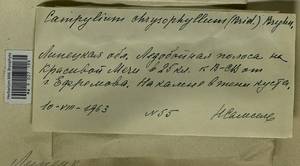 Campylium chrysophyllum (Brid.) Bryhn,
Липецкая обл. Ледобойная полоса на
Красивой Мечи в 25 км. к В-СВ от
г. Ефремова. На камне в тени куста,
10-VIII-1963 N 55